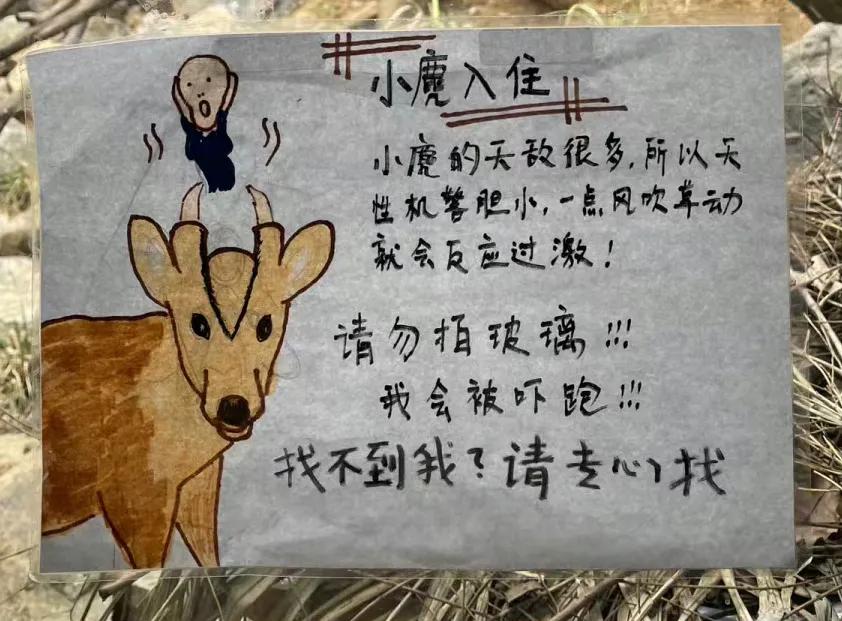 小麂入住
小麂的天敌很多,所以天
性机警胆小,一点风吹草动
就会反应过激!
请勿拍玻璃!!!
我会被吓跑!!!
找不到我?请专心找